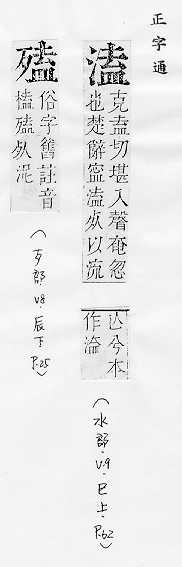 正字通
溘
克盍切堪入聲奄忽
也楚辭寧溘死以流
亾兮本
作
(水部·V.9·巳上·P.62)
𣩄
俗字舊註音
榼𣩄死泥
(歹部·V.8·辰下·P.25)